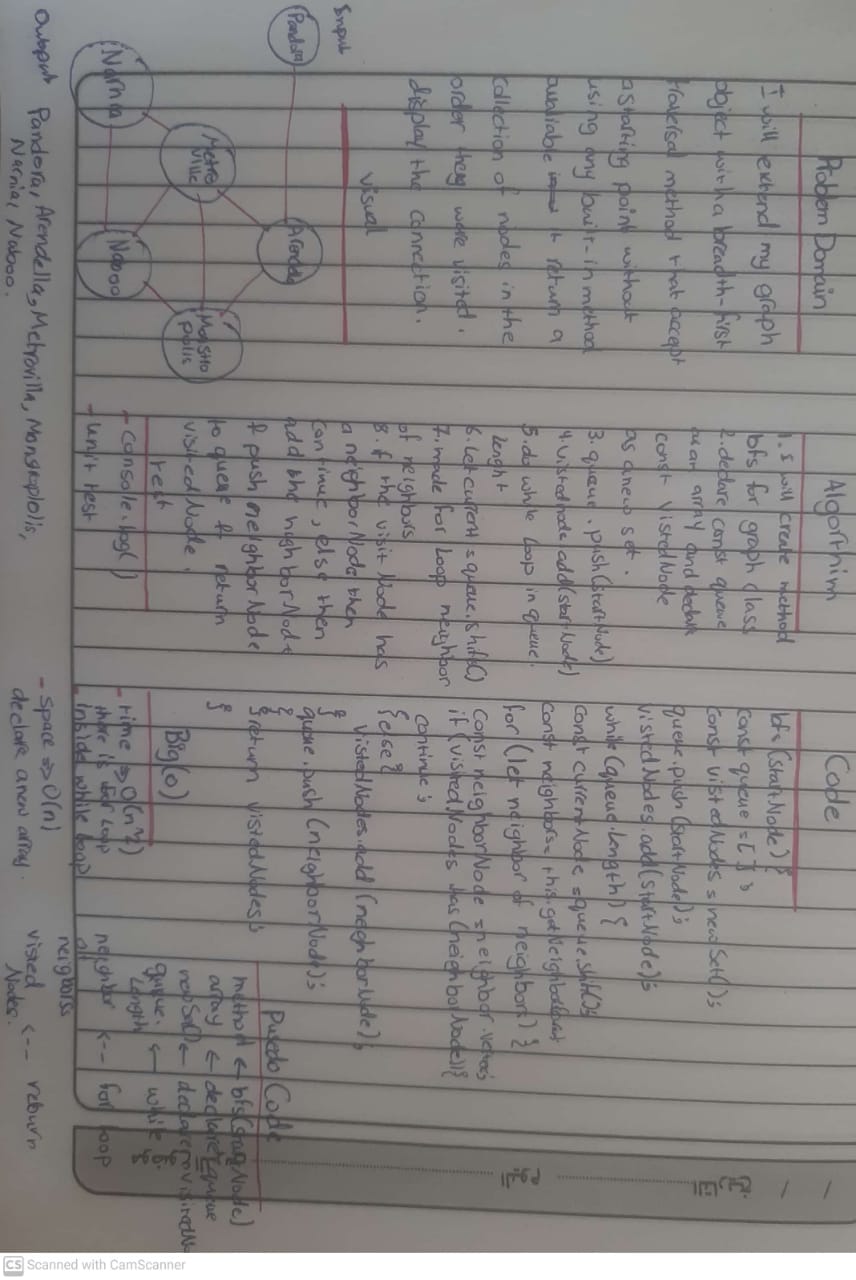 Problem Domain
I will extend my graph
object with a breadth-first
traversal method that accept
a starting point without
using any built-in method
available & return a
collection of nodes in the
order they were visited.
display the connection.
visual
Input
Pandora
Arendella
Metro
ville
Monstro
polis
Narnia
Naboo
Output Pandora, Arendella, Metrovilla, Monsraplolis,
Narnia, Naboo.
Algorithim
1. I will create method
bfs for graph class
2. declare const queue
as an array and declare
const vistedNode
as a new set.
3. queue.push(startNode)
4. visitednode add(startNode)
5. do while loop in queue.
lenght
6. let current = queue.shift()
7. made for loop neighbor
of neighbors
8. if the visit Node has
a neighborNode then
continue, else then
add the nighborNode
& push neighborNode
to queue & return
visitedNode.
test
- console.log()
- unit test
Code
bfs (startNode) {
const queue = [ ];
const vistedNodes = new Set();
queue.push (startNode);
vistedNodes.add(startNode);
while (queue.length) {
const currentNode = queue.shift();
const neighbors = this.getNeighbors
for (let neighbor of neighbors) {
const neighborNode = neighbor.vertex;
if (vistedNodes has (neighborNode)) {
continue;
} else {
vistedNodes.add (neighborNode);
}
queue.push (neighborNode);
}
}
return vistedNodes;
}
Big(o)
- time => O(n^2)
there is for loop
inside while loop
- space => O(n)
declare a new array.
Pusedo Code
method <- bfs(startNode)
array <- declare queue
newSet() <- declare
queue. <- while
length
neighbor <-- for loop
of
neigbors
visted <-- return
Nodes.
CS Scanned with CamScanner